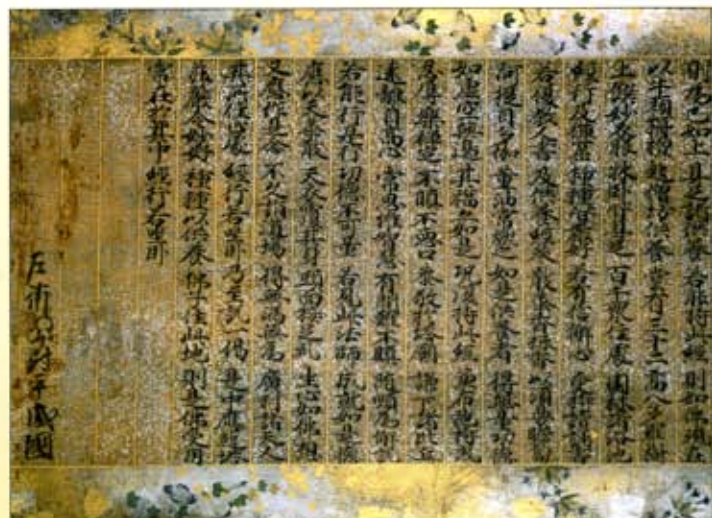 則為已如上 具足諸供養 若能持此經 則如佛現在
以牛頭栴檀 起僧坊供養 堂有三十二 高八多羅樹
上饌妙衣服 床臥皆具足 百千衆住處 園林諸浴池
經行及禪窟 種種皆嚴好 若有信解心 受持讀誦書
若復教人書 及供養經卷 散華香抹香 以須曼瞻蔔
阿提目多伽 薰油常燃之 如是供養者 得無量功德
如虛空無邊 其福亦如是 況復持此經 兼布施持戒
忍辱樂禪定 不瞋不惡口 恭敬於塔廟 謙下諸比丘
遠離自高心 常思惟智慧 有問難不瞋 隨順為解說
若能行是行 功德不可量 若見此法師 成就如是德
應以天華散 天衣覆其身 頭面接足禮 生心如佛想
又應作是念 不久詣道場 得無漏無為 廣利諸人天
其所住止處 經行若坐臥 乃至說一偈 是中應起塔
莊嚴令妙好 種種以供養 佛子住此地 則是佛受用
常在於其中 經行若坐臥
左衛尉平盛國